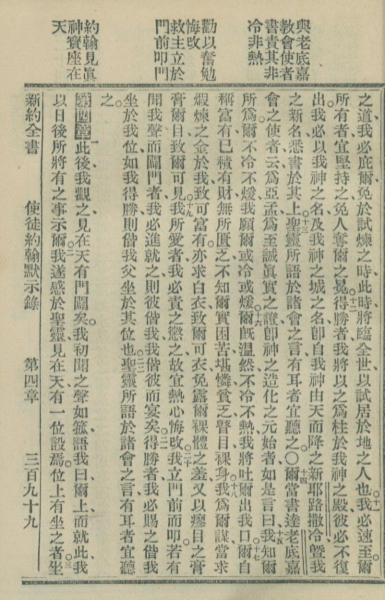 與老底嘉
教會使者
書責其非
冷非熱
勸以奮勉
悔改
救主立於
門前叩門
約翰見眞
神寶座在
天
之道我必庇爾免於試煉之時此時將臨全世以試居於地之人也十一我必速至爾
所有者宜堅持之免人奪爾之冕十二得勝者我將以之爲柱於我神之殿彼必不復
出我必以我神之名及我神之城之名卽自我神由天而降之新耶路撒冷曁我
之新名悉書於其上十三聖靈所語於諸會之言有耳者宜聽之〇十四爾當書達老底嘉
會之使者云爲亞孟爲至誠眞實之證卽神之造化之元始者如是言曰十五我知爾
所爲爾不冷不煖我願爾或冷或煖十六爾旣溫然不冷不熱我將吐爾出我口十七爾自
稱富有已積有財無所匱乏不知爾實困苦堪憐貧乏瞽目裸身十八我爲爾謀當求
煆煉之金於我致可富有亦求白衣致爾可衣免露爾裸體之羞又以瘳目之膏
膏爾目致爾可見十九我所愛者我必責之懲之故宜熱心悔改二十我立門前而叩若有
聞我聲而闢門者我必進就之則彼偕我我偕彼而宴矣二一得勝者我必賜之偕我
坐於我位如我得勝則偕我父坐於其位也二二聖靈所語於諸會之言有耳者宜聽
之
第四章一此後我觀之見在天有門闢矣我初聞之聲如箛語我曰爾上而就此我
以日後所將有之事示爾二我遂感於聖靈見在天有一位設焉位上有坐之者三坐
新約全書　使徒約翰默示錄　第四章　三百九十九